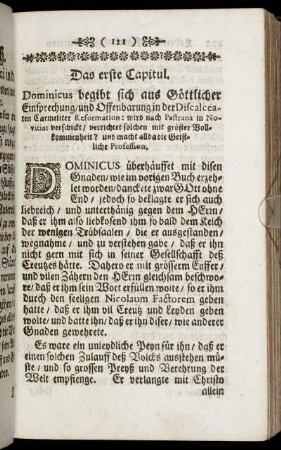 ( 121 )
Das erste Capitul.
Dominicus begibt sich aus Göttlicher
Einsprechung/ und Offenbarung in der Discalcea-
ten Carmeliter Reformation: wird nach Pastrana in No-
vitiat verschickt/ verrichtet solchen mit gröster Voll-
kommenheit/ und macht allda die Geist-
liche Profession.
DOMINICUS überhäuffet mit disen
Gnaden/ wie im vorigen Buch erzeh-
let worden/ danckete zwar GOtt ohne
End/ jedoch so beklagte er sich auch
liebreich/ und unterthänig gegen dem HErrn/
daß er ihm also liebkosend ihm so bald dem Kelch
der wenigen Trübsaalen/ die er ausgestanden/
wegnahme/ und zu verstehen gabe/ daß er ihn
nicht gern mit sich in seiner Gesellschafft deß
Creutzes hätte. Dahero er mit grösserm Eyffer/ und
vilen Zähern den HErrn gleichsam beschwo-
re/ daß er ihm sein Wort erfüllen wolte/ so er ihm
durch den seeligen Nicolaum Factorem geben
hatte/ daß er ihm vil Creutz und Leyden geben
wolte/ und batte ihn/ daß er ihn diser/ wie anderer
Gnaden gewehrete.
Es ware ein unleydliche Peyn für ihn/ daß er
einen solchen Zulauff deß Volcks ausstehen mü-
ste/ und so grossen Preyß und Verehrung der
Welt empfienge. Er verlangte mit Christo
allein